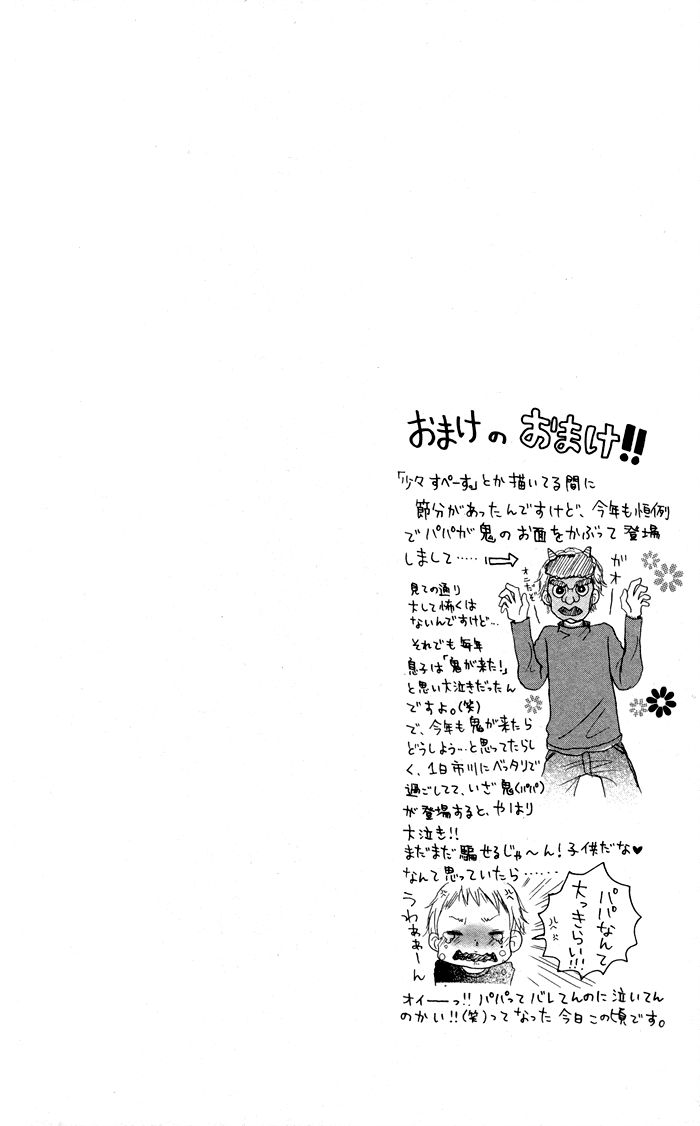 おまけの おまけ!!
「少々すぺーす」とか描いてる間に
節分があったんですけど、今年も恒例
でパパが鬼のお面をかぶって登場
しまして……
オニだぞ
ガオー
見ての通り
大して怖くは
ないんですけど…
それでも毎年
息子は「鬼が来た!」
と思い大泣きだったん
ですよ。(笑)
で、今年も鬼が来たら
どうしよう…と思ってたらし
く、1日市川にベッタリで
過ごしてて、いざ鬼(パパ)
が登場すると、やはり
大泣き!!
まだまだ騙せるじゃ〜ん!子供だな♥
なんて思っていたら……
パパなんて
大っきらい!!!
うわぁぁーん
オイーっ!!パパってバレてんのに泣いてん
のかい!!(笑)ってなった今日この頃です。